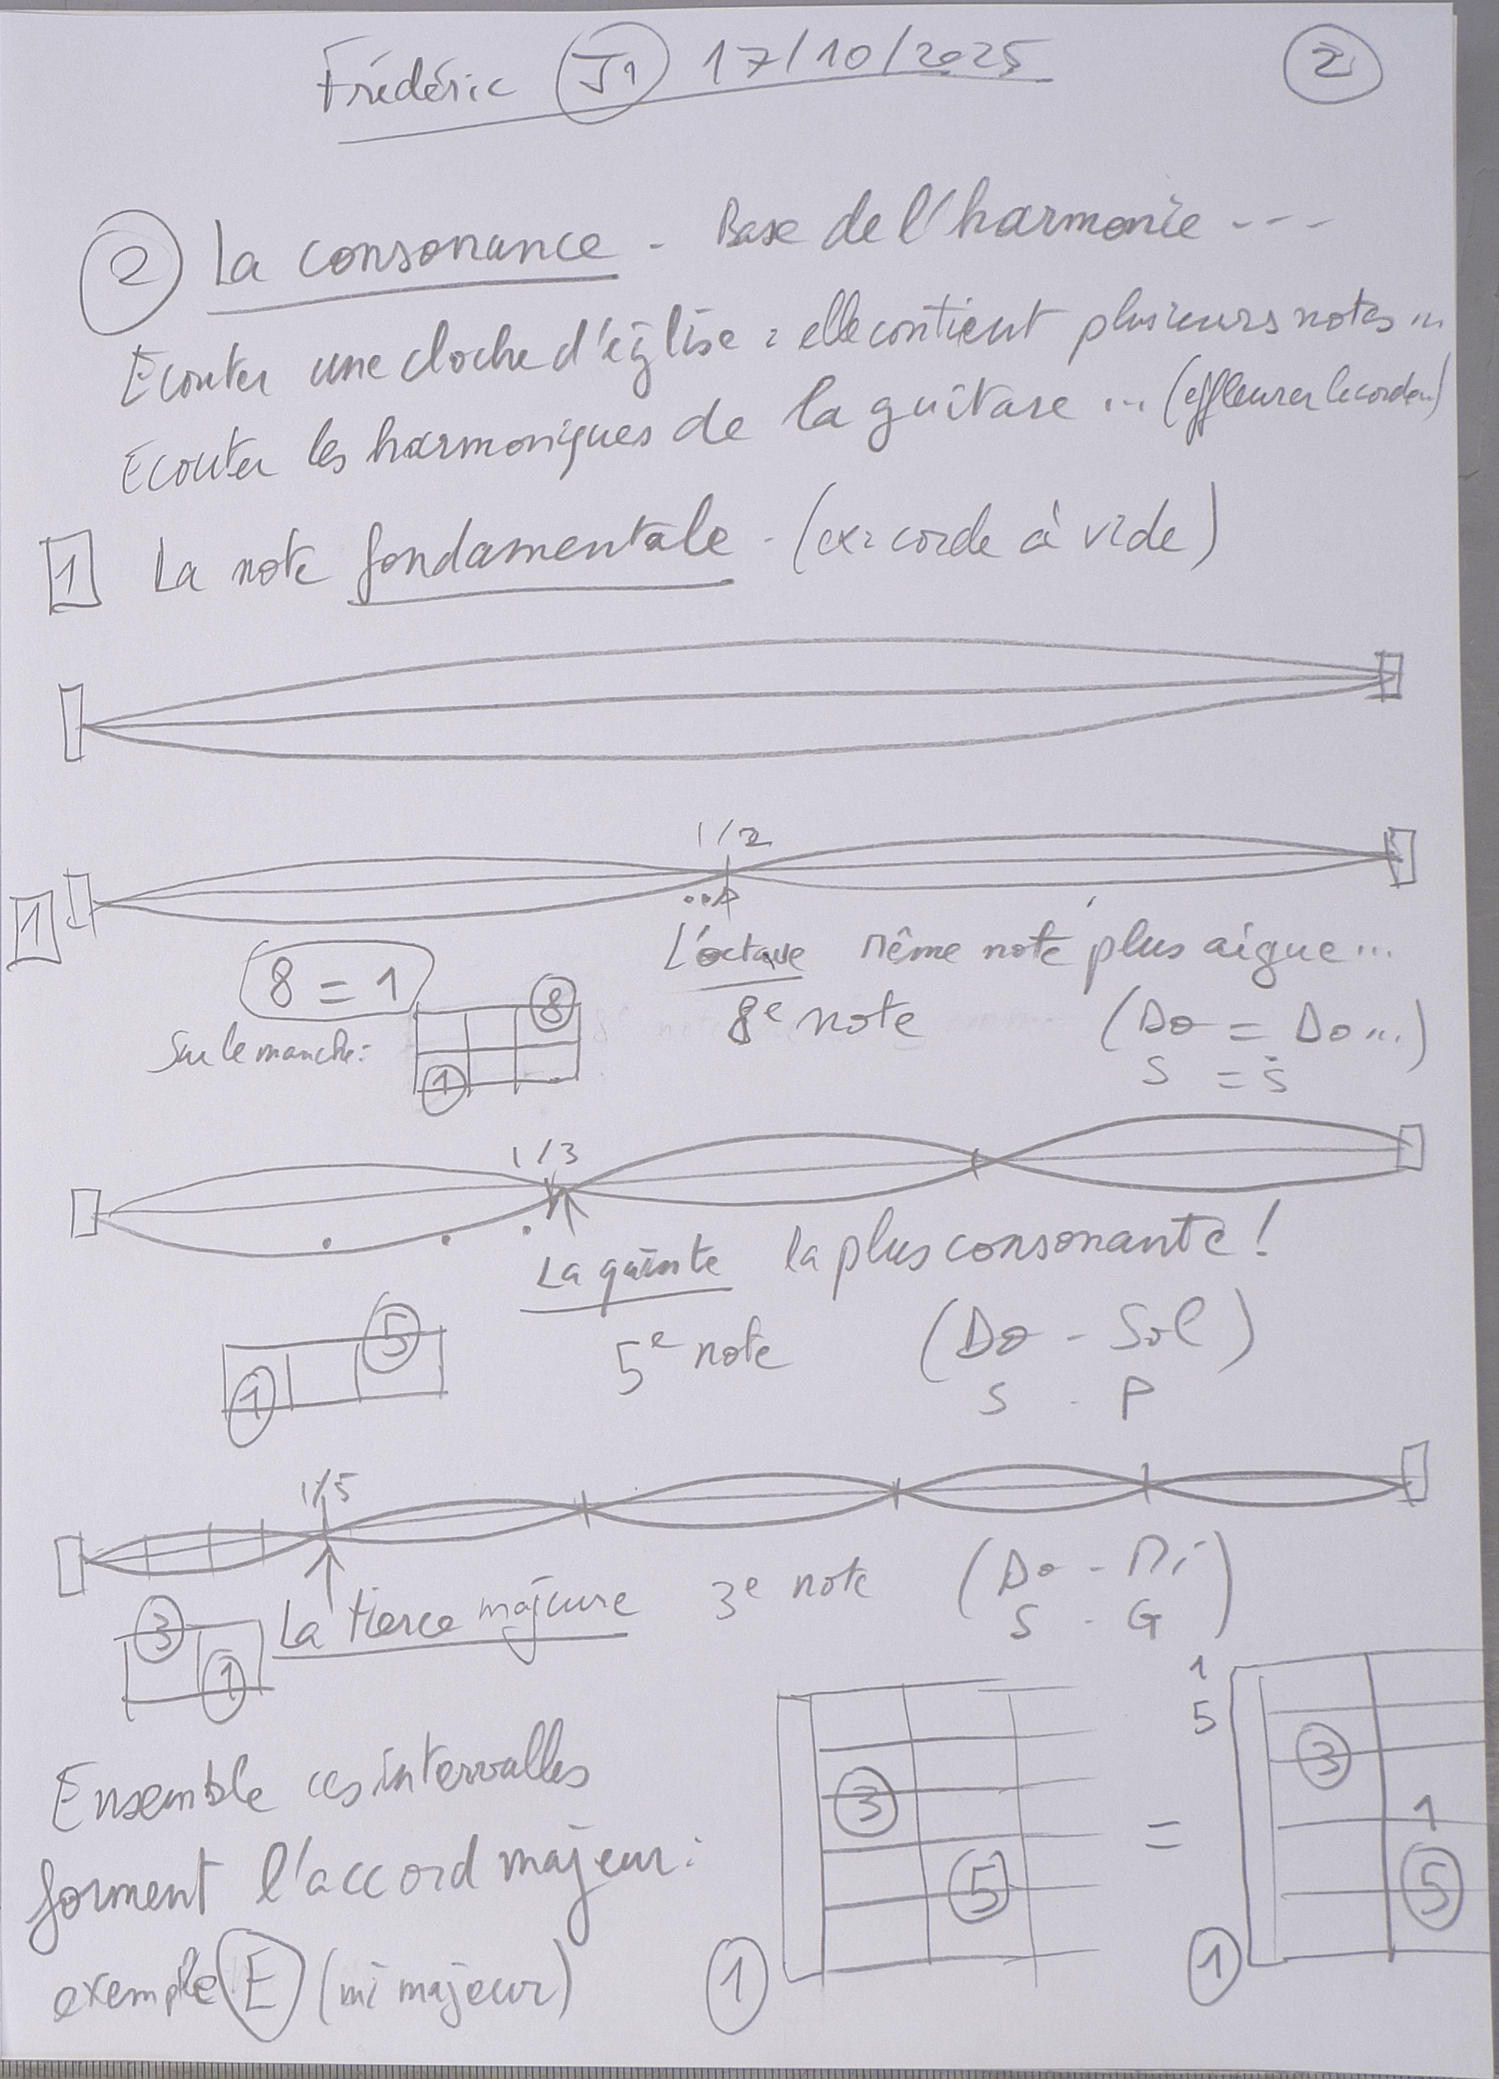 Frédéric J1 17/10/2025 2
2 La consonance - Base de l'harmonie ---
Ecouter une cloche d'église : elle contient plusieurs notes...
Ecouter les harmoniques de la guitare ... (effleurer la corde...)
1 La note fondamentale - (ex: corde à vide)
1/2
1
L'octave même note plus aigue...
8 = 1
8e note (Do = Do...)
8
Sur le manche:
1
S = S
1/3
La quinte la plus consonante !
5
5e note (Do - Sol)
1
S - P
1/5
La tierce majeure 3e note (Do - Mi)
3
S - G
1
1
5
3
3
Ensemble ces intervalles
1
forment l'accord majeur:
5
5
exemple E (mi majeur)
1
1
=